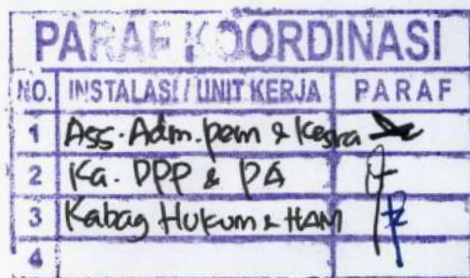 PARAF KOORDINASI
NO. INSTALASI / UNIT KERJA PARAF
1 Ass. Adm. pem & Kesra
2 Ka. DPP & PA
3 Kabag Hukum & HAM
4